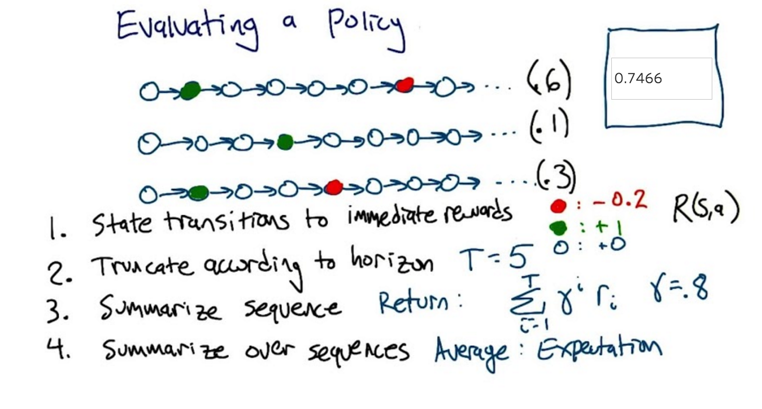 Evaluating a Policy
0.7466
... (.6)
... (.1)
... (.3)
1. State transitions to immediate rewards
: -0.2
: +1
: +0
R(s,a)
2. Truncate according to horizon T=5
3. Summarize sequence Return: T Σ i=1 γ^i r_i γ=.8
4. Summarize over sequences Average: Expectation